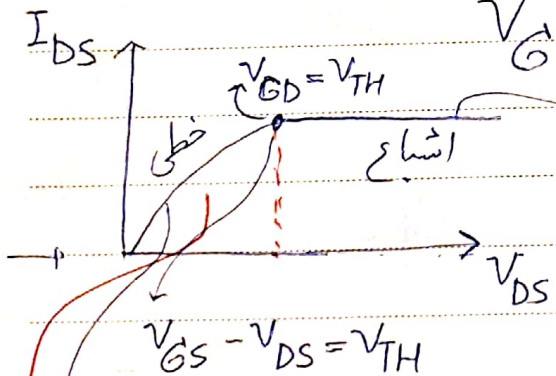 I_DS
V_G
V_GD = V_TH
خطی
اشباع
V_DS
V_GS - V_DS = V_TH